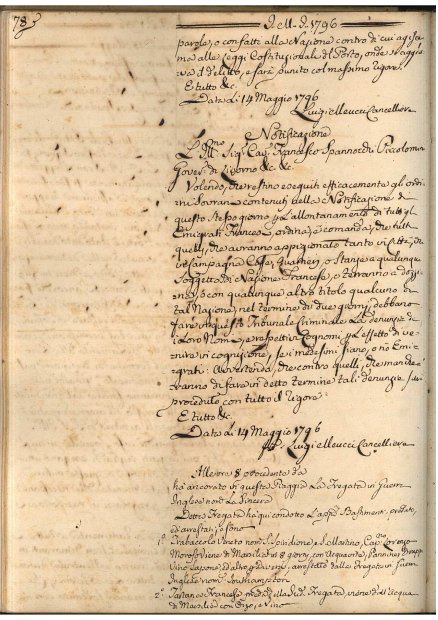 78
A dì M. d. 1796
parole, o con fatti alla Nazione contro di cui agi
ma alle Leggi Costituzionali del Porto, onde
del delitto, e sarà punito col massimo rigore.
E tutto &c.
Data dì 14 Maggio 1796
Luigi Meucci Cancelliere
Notificazione
L'Ill.mo Sig.r Cav. Francesco Spannocchi Piccolomini
Gover.e di Livorno &c. &c.
Volendo, che restino eseguiti efficacemente gli ordi
ni Sovrani contenuti nella Notificazione di
questo stesso giorno p l'allontanamento di tutti gl'
Emigrati Francesi, ordina, e comanda, che tutti
quelli, che avranno appigionato tanto in Città, che
in Campagna Case, Quartieri, o Stanze a qualunque
Soggetto di Nazione Francese, o terranno a dozzi
na, o con qualunque altro titolo qualcuno di
tal Nazione, nel termine di due giorni debbano
fare in questo Tribunale Criminale La denunzia de
i loro Nomi, e respettivi Cognomi p l'effetto di ve
nire in cognizione, se i medesimi siano, o nò Emi
grati: Avvertendo, che contro quelli, che manche
ranno di fare in detto termine tali denunzie si
procederà con tutto il rigore.
E tutto &c.
Data dì 14 Maggio 1796
Luigi Meucci Cancelliere
All'ore 8
ha ancorato in questa Spiaggia La Fregata in Guerra
Inglese nom.a La
Detta Fregata hà qui condotto
ed arrestati, e sono
1.° Trabaccolo Veneto nom.to S. Spiridione, e S. Martino, Cap.no Lorenzo
Moroso viene di Marsilia in 8 giorni, con Acquavite, Pannine,
Vino, Sapone, ed altri generi, arrestato dalla Fregata in Guerra
Inglese nom.a Southampton
2.° Tartana Francese predata dalla sud.a Fregata, viene di
di Marsilia con Orzo, e Vino